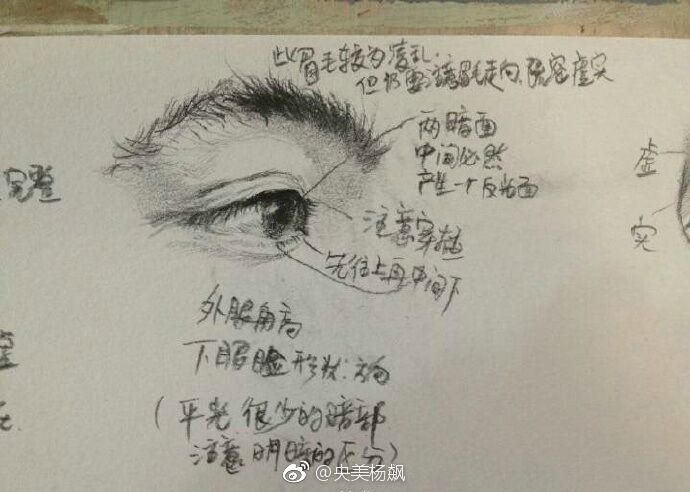 此眉毛较为凌乱.
但仍要注意眉毛走向,疏密虚实
两暗面
中间必然
产生一个反光面
完整
虚
实
注意穿插
先往上再中间下
外眼角高
下眼睑形状.方向
(平光 很少的暗部
注意明暗的区分)
@央美杨飙